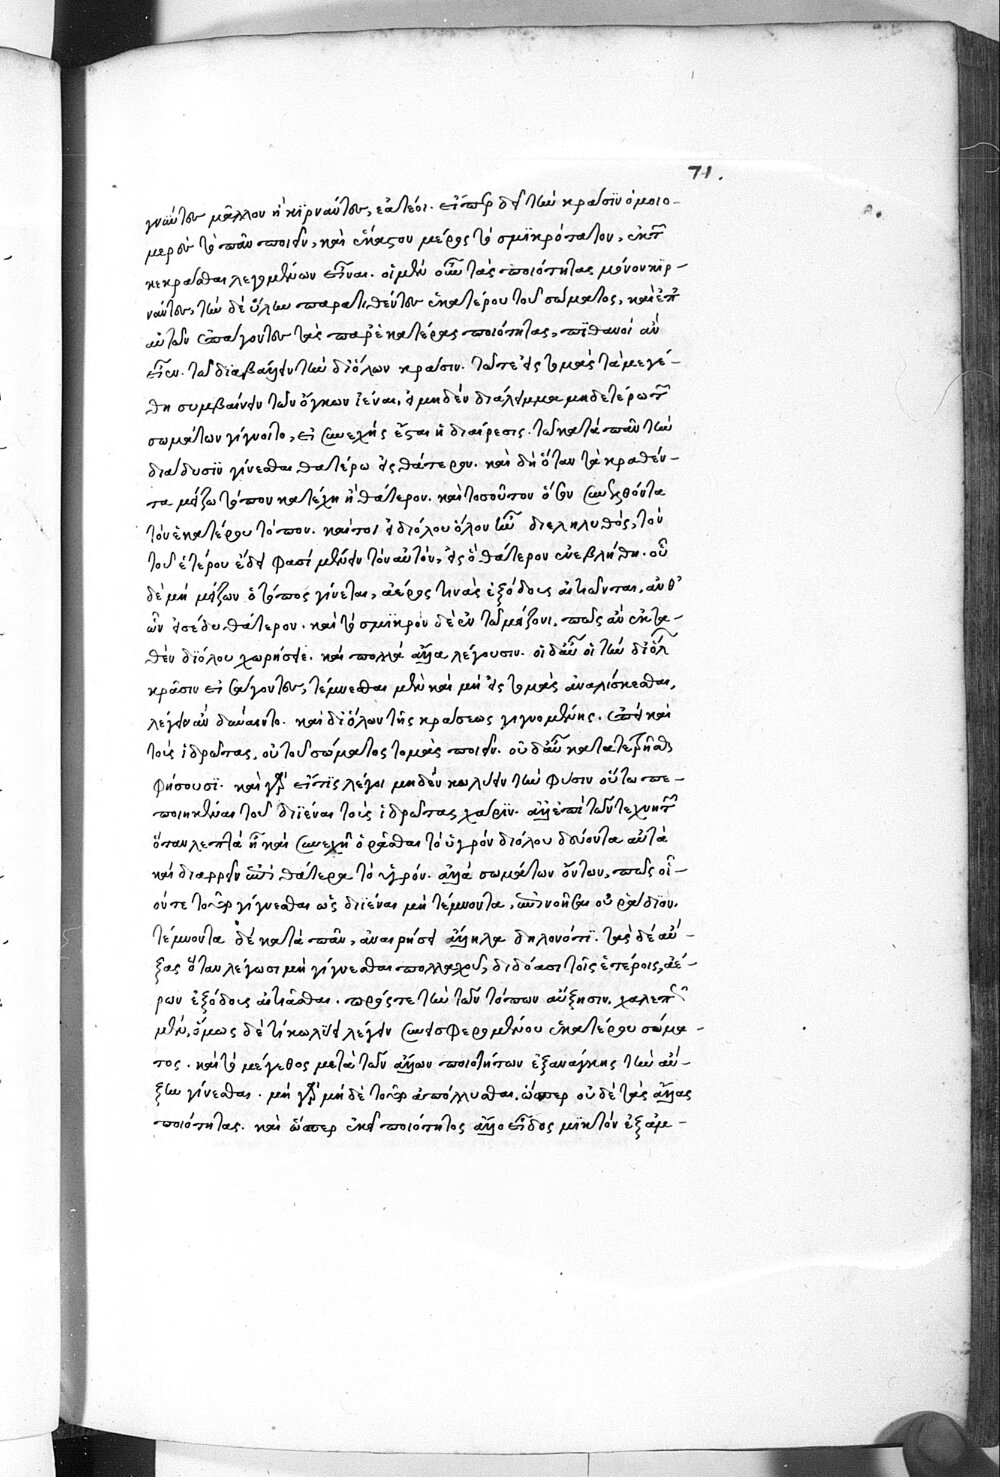 71.
γνύντες μᾶλλον ἢ κιρνάντες, ἐατέοι. εἴπερ δεῖ τὴν κρᾶσιν ὁμοιο-
μερὲς τὸ πᾶν ποιεῖν, καὶ ἕκαστον μέρος τὸ σμικρότατον, ἐκ τῶν
κεκρᾶσθαι λεγομένων εἶναι. οἱ μὲν οὖν τὰς ποιότητας μόνον κιρ-
νάντες, τὴν δὲ ὕλην παρατιθέντες ἑκατέρου τοῦ σώματος, καὶ ἐπ'
αὐτῶν ἐπάγοντες τὰς παρ' ἑκατέρας ποιότητας, πιθανοὶ ἂν
εἶεν. τῷ διαβάλλειν τὴν δι' ὅλων κρᾶσιν. τῷ τε εἰς τομὰς τὰ μεγέ-
θη συμβαίνειν τῶν ὄγκων ἰέναι, εἰ μηδὲν διάλειμμα μηδετέρῳ τῶν
σωμάτων γίγνοιτο, εἰ συνεχὴς ἔσται ἡ διαίρεσις. τῷ κατὰ πᾶν τὴν
διάδυσιν γίνεσθαι θατέρῳ εἰς θάτερον. καὶ δὴ ὅταν τὰ κραθέν-
τα μείζω τόπον κατέχῃ ἢ θάτερον. καὶ τοσοῦτον ὅσον συνελθόντα
τὸν ἑκατέρου τόπον. καίτοι εἰ διόλου ὅλον ἦν διεληλυθός, τὸν
τοῦ ἑτέρου ἔδει φασὶ μένειν τὸν αὐτόν, εἰς ὃ θάτερον ἐνεβλήθη. οὗ
δὲ μὴ μείζων ὁ τόπος γίνεται, ἀέρος τινὰς ἐξόδους αἰτιῶνται, ἀνθ'
ὧν εἰσέδυ θάτερον. καὶ τὸ σμικρὸν δὲ ἐν τῷ μείζονι. πῶς ἂν ἐκτα-
θὲν διόλου χωρήσειε. καὶ πολλὰ ἄλλα λέγουσιν. οἱ δ' αὖ οἱ τὴν δι' ὅλων
κρᾶσιν εἰσάγοντες, τέμνεσθαι μὲν καὶ μὴ εἰς τομὰς ἀναλίσκεσθαι,
λέγειν ἂν δύναιντο. καὶ δι' ὅλων τῆς κράσεως γιγνομένης. ἐπεὶ καὶ
τοὺς ἱδρῶτας, οὐ τοῦ σώματος τομὰς ποιεῖν. οὐδ' αὖ κατατετρῆσθαι
φήσουσι. καὶ γὰρ εἴ τις λέγοι μηδὲν κωλύειν τὴν φύσιν οὕτω πε-
ποιηκέναι τοῦ διϊέναι τοὺς ἱδρῶτας χάριν. ἀλλ' ἐπὶ τῶν τεχνητῶν
ὅταν λεπτὰ ᾖ καὶ συνεχῆ ὁρᾶσθαι τὸ ὑγρὸν διόλου δεύοντα αὐτὰ
καὶ διαρρεῖν ἐπὶ θάτερα τὸ ὑγρόν. ἀλλὰ σωμάτων ὄντων, πῶς οἷ-
όν τε τοῦτο γίγνεσθαι ὡς διϊέναι μὴ τέμνοντα, ἐπινοῆσαι οὐ ῥάδιον.
τέμνοντα δὲ κατὰ πᾶν, ἀναιρήσει ἄλληλα δηλονότι. τὰς δὲ αὔ-
ξας ὅταν λέγωσι μὴ γίγνεσθαι πολλαχοῦ, διδόασι τοῖς ἑτέροις, ἀέ-
ρων ἐξόδους αἰτιᾶσθαι. πρός τε τὴν τῶν τόπων αὔξησιν. χαλεπῶς
μέν, ὅμως δὲ τί κωλύει λέγειν συνεισφερομένου ἑκατέρου σώμα-
τος. καὶ τὸ μέγεθος μετὰ τῶν ἄλλων ποιοτήτων ἐξανάγκης τὴν αὔ-
ξην γίνεσθαι. μὴ γὰρ μὴ δὲ τοῦτο ἀπόλλυσθαι, ὥσπερ οὐδὲ τὰς ἄλλας
ποιότητας. καὶ ὥσπερ ἐκεῖ ποιότητος ἄλλο εἶδος μικτὸν ἐξ ἀμ-